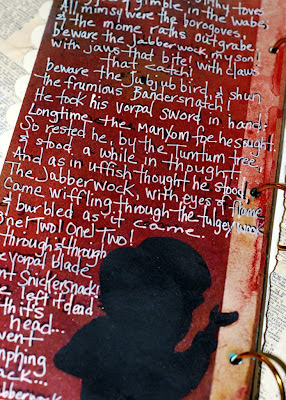 gimble in the wabe;
All mimsy were the borogoves,
& the mome raths outgrabe.
beware the Jabberwock, my son!
with jaws that bite! with claws
that catch!
beware the Jubjub bird, & shun
the frumious Bandersnatch!
He took his vorpal sword in hand:
Longtime the manxom foe he sought,
So rested he, by the Tumtum tree,
& stood a while in thought.
And as in uffish thought he stood,
The Jabberwock, with eyes of flame
Came wiffling through the tulgey wood
& burbled as it came.
One! Two! One! Two!
Through & through
e vorpal blade
nt snickersnack
e left it dead...
th it's
head...
went
mphing
ack...
abberwock